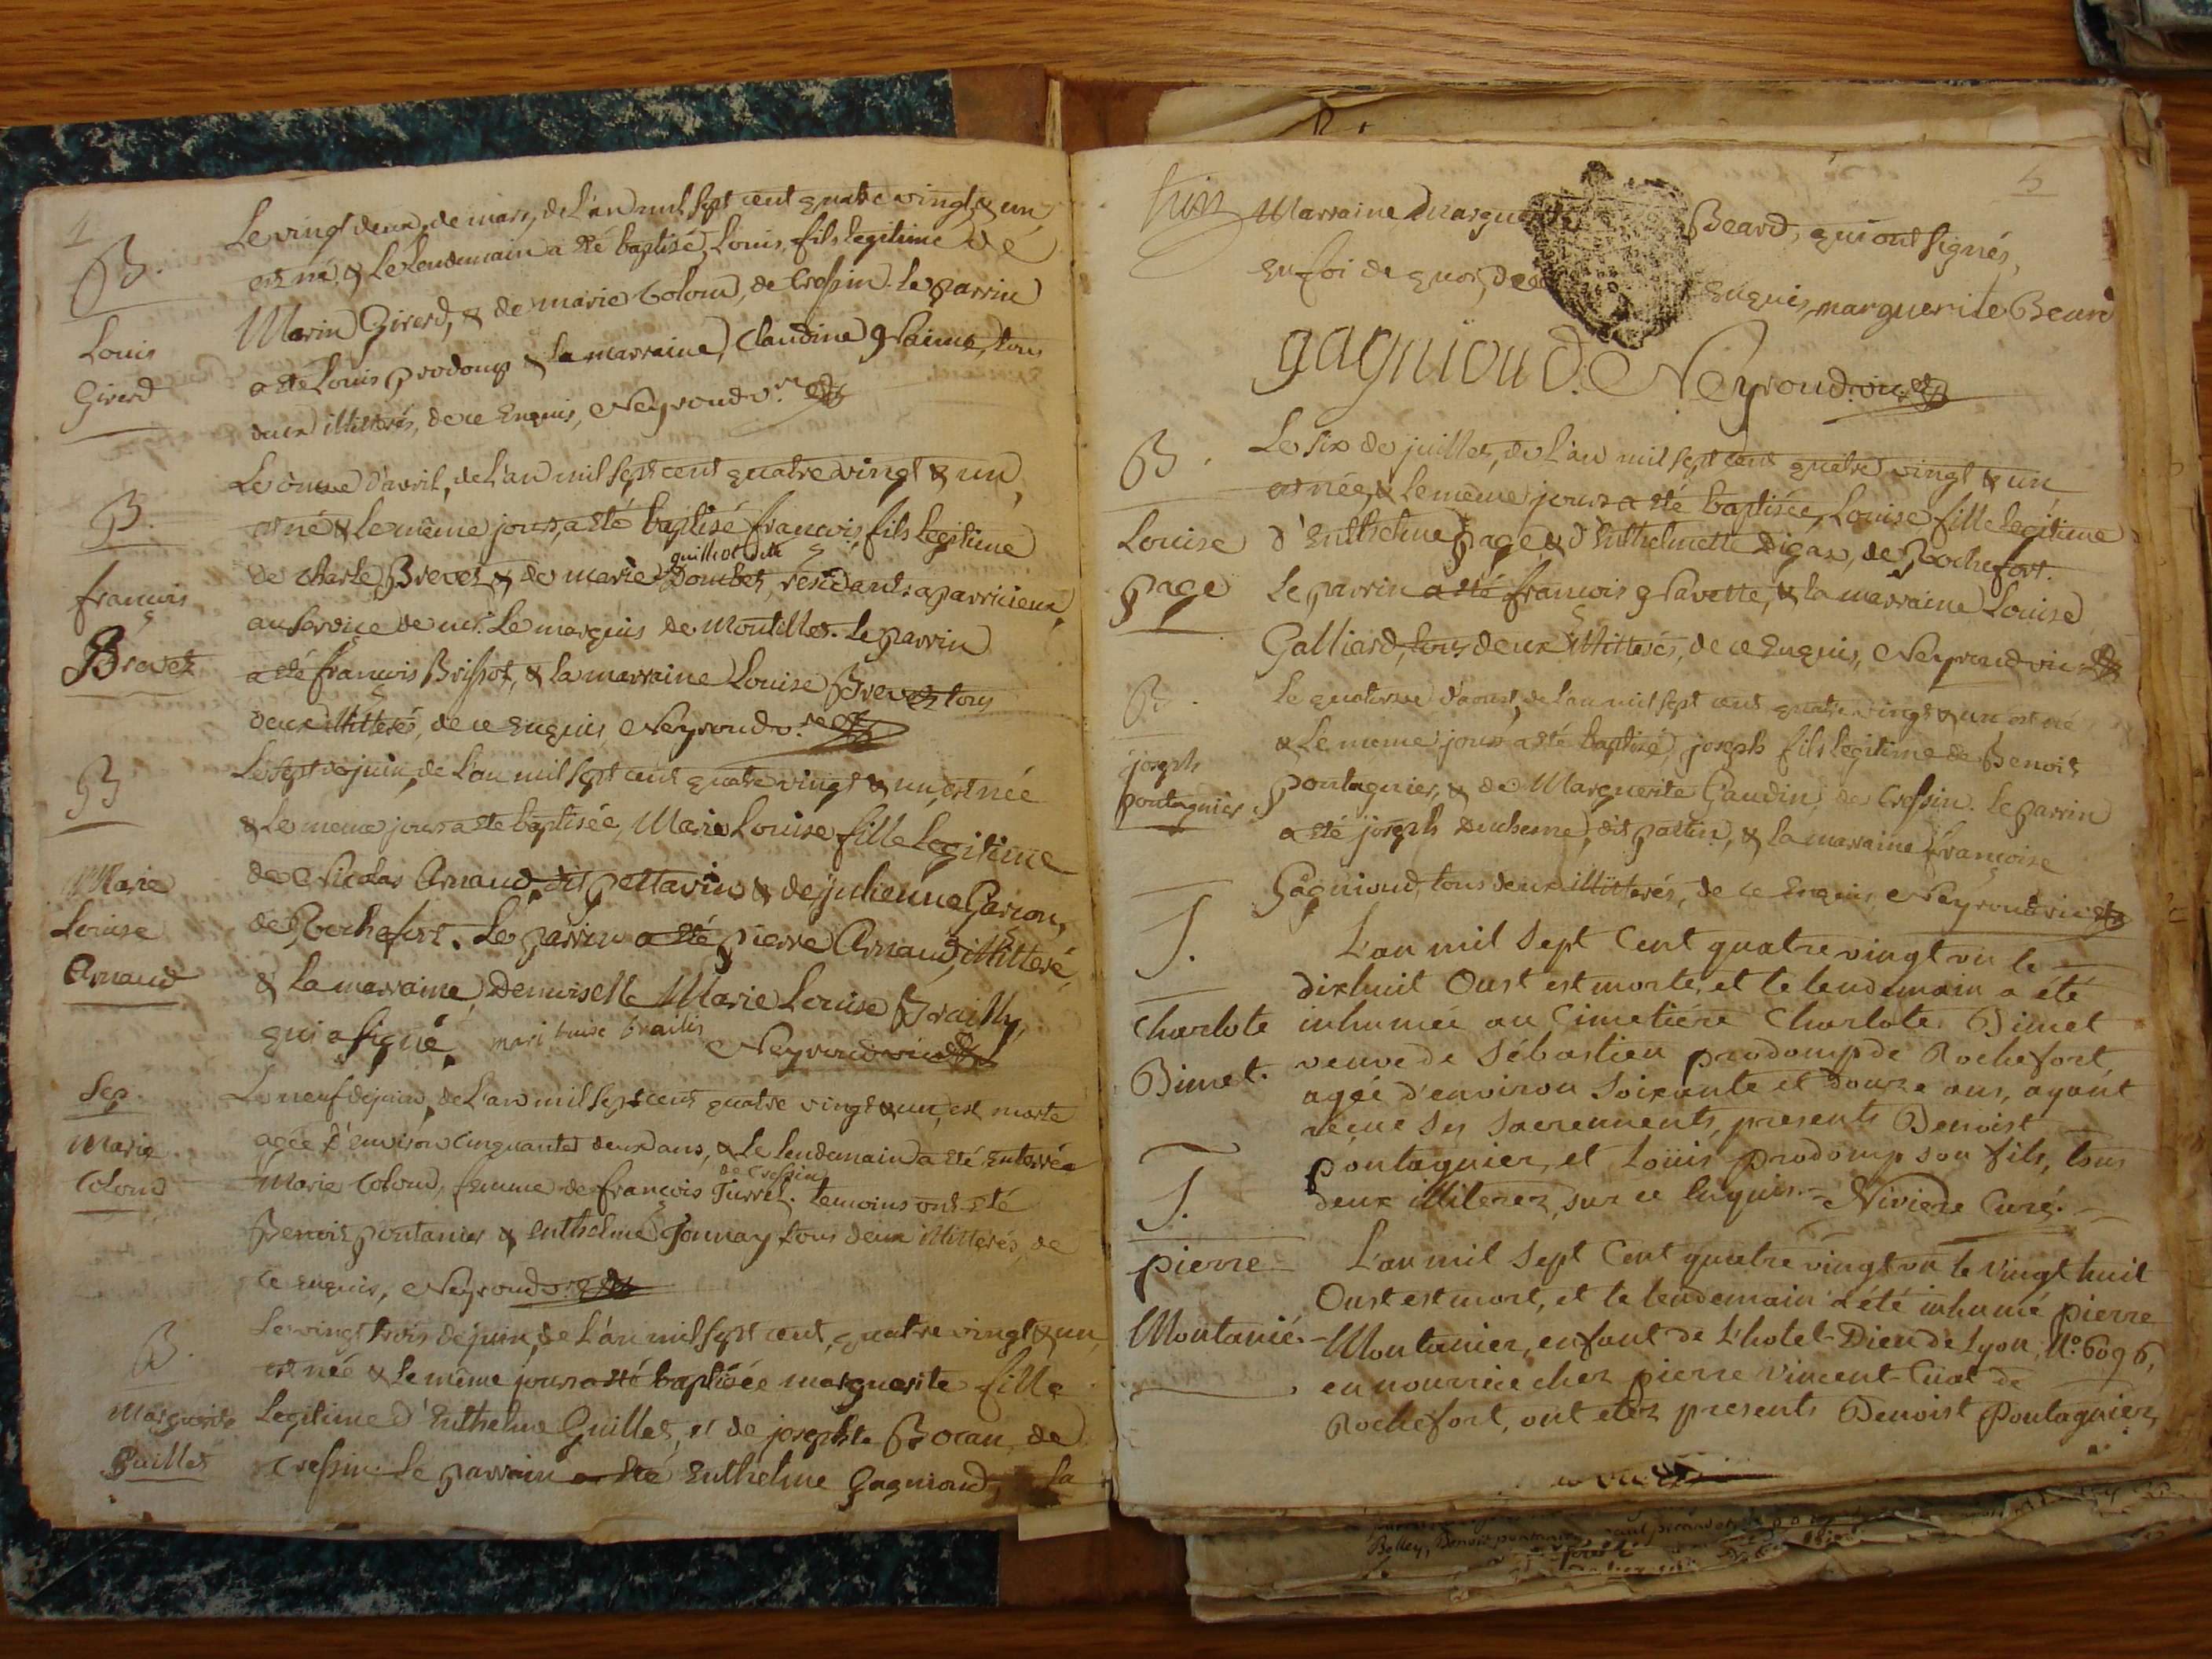 4
B.
Louis
Girerd
Le vingt deux de mars, de L'an mil sept cent quatre vingt & un,
est né, & Le Lendemain a été baptisé, Louis, fils legitime de
Marin Girerd, & de marie Coloud, de Cressin. le parrin
a été Louis prodomp & la marraine, Claudine tous
deux illitterés, de ce Enquis, Neyroud v.re
B.
françois
Brevet
Le onze d'avril, de L'an mil sept cent quatre vingt & un,
est né & le même jour, a été baptisé françois, fils legitime
guilliot dite
de charle Brevet, & de marie Dombet, résidants a parricieux
au service de mr. Le marquis de Montillet. le parrin
a été françois Brissot, & la marraine Louise Brevet tous
deux illitterés, de ce enquis Neyroud v.re
B
Marie
Louise
Arnaud
Le sept de juin, de L'an mil sept cent quatre vingt & un, est née
& Le meme jour a été baptisée, Marie Louise fille Legitime
de Nicolas Arnaud, dit pettavin & de julienne Garçon,
de Rochefort. Le parrin a été pierre Arnaud, illitteré,
& La marraine, Demoiselle Marie Louise Brailly,
qui a signé. mari luise brailis Neyroud vic
Sep.
Marie
Coloud
Le neuf de juin, de L'an mil sept cent quatre vingt & un, est morte
agée d'environ cinquante deux ans, & Le lendemain a été enterrée
de Cressin
Marie Coloud, femme de françois Turrel. temoins ont été
Benoit pontanier & enthelme Jonnay tous deux illitterés, de
ce enquis, Neyroud v.re
B.
Marguerite
Guillet
Le vingt trois de juin, de L'an mil sept cent, quatre vingt & un,
est née & le même jour a été baptisée marguerite fille
legitime d'Enthelme Guillet, et de josephte Bocan, de
Cressin. Le parrain a été Enthelme Gagnioud, & la
5
Marraine Marguerite Beard, qui ont signés,
en foi de quoi, de ce Enquis, marguerite Beard
gagnioud. Neyroud. vic.
B.
Louise
page
Le six de juillet, de L'an mil sept cent quatre vingt & un
est née, & le même jour a été baptisée, Louise fille legitime
d'Enthelme page & d'Enthelmette Digas, de Rochefort.
Le parrin a été françois Pavette, & la marraine Louise
Galliard, tous deux illitterés, de ce enquis, Neyroud vic
B.
joseph
pontagnier
Le quatorze d'aoust, de l'an mil sept cent quatre vingt & un est né
& Le meme jour a été baptisé, joseph fils legitime de Benoit
pontagnier, & de Marguerite Gaudin, de Cressin. le parrin
a été joseph Duchesne, dit patin, & la marraine françoise
Gagnioud, tous deux illitterés, de ce Enquis Neyroud vic
S.
Charlote
Dimet.
L'an mil Sept Cent quatre vingt un le
dixhuit Oust est morte, et le lendemain a été
inhumée au Cimetière Charlote Dimet
veuve de Sébastien prodomp de Rochefort,
agée d'environ Soixante et Douze ans, ayant
réçue Ses Sacrements, presents Benoist
pontagnier, et Loüis prodomp son fils, tous
deux illiterez, sur ce Enquis. Niviere Curé.
S.
pierre
Montanié.
L'an mil Sept Cent quatre vingt un le Vingt huit
Oust est mort, et le lendemain a été inhumé pierre
Montanier, enfant de L'hotel-Dieu de Lyon, N.o 6096,
en nourrice chez pierre Vincent-Cuat de
Rochefort, ont etez presents Benoist Pontagnier,